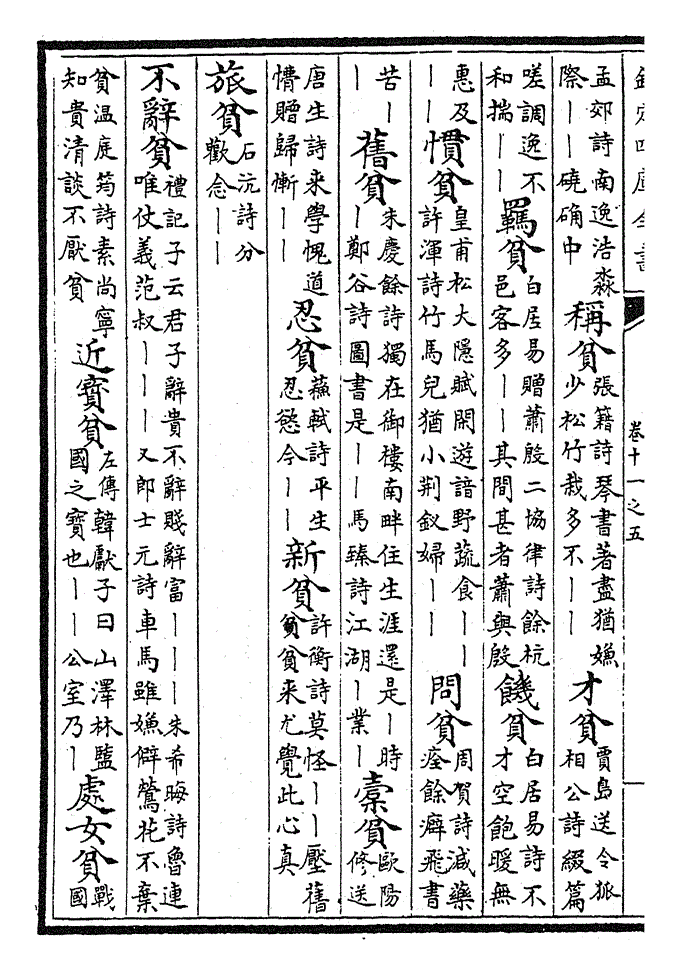 欽定四庫全書 卷十一之五 一
孟郊詩南逸浩淼際丨丨磽确中 稱貧 張籍詩琴書著盡猶嫌少松竹栽多不丨丨 才貧 賈島送令狐相公詩綴篇
嗟調逸不和揣丨丨 羈貧 白居易贈蕭殷二協律詩餘杭邑客多丨丨其間甚者蕭與殷 饑貧 白居易詩不才空飽暖無
惠及丨丨 慣貧 皇甫松大隱賦閑遊諳野蔬食丨丨許渾詩竹馬兒猶小荆釵婦丨丨 問貧 周賀詩減藥痊餘癖飛書
苦丨丨 舊貧 朱慶餘詩獨在御樓南畔住生涯還是丨時丨鄭谷詩圖書是丨丨馬臻詩江湖丨業丨 橐貧 歐陽修送
唐生詩来學愧道慵贈歸慚丨丨 忍貧 蘇軾詩平生忍慾今丨丨 新貧 許衡詩莫怪丨丨壓舊貧貧来尤覺此心真
旅貧 石沆詩分歡念丨丨
不辭貧 禮記子云君子辭貴不辭賤辭富丨丨丨朱希晦詩魯連唯仗義范叔丨丨丨又郎士元詩車馬雖嫌僻鶯花不棄
貧温庭筠詩素尚寧知貴清談不厭貧 近寶貧 左傳韓獻子曰山澤林監國之寶也丨丨公室乃丨 處女貧 戰國